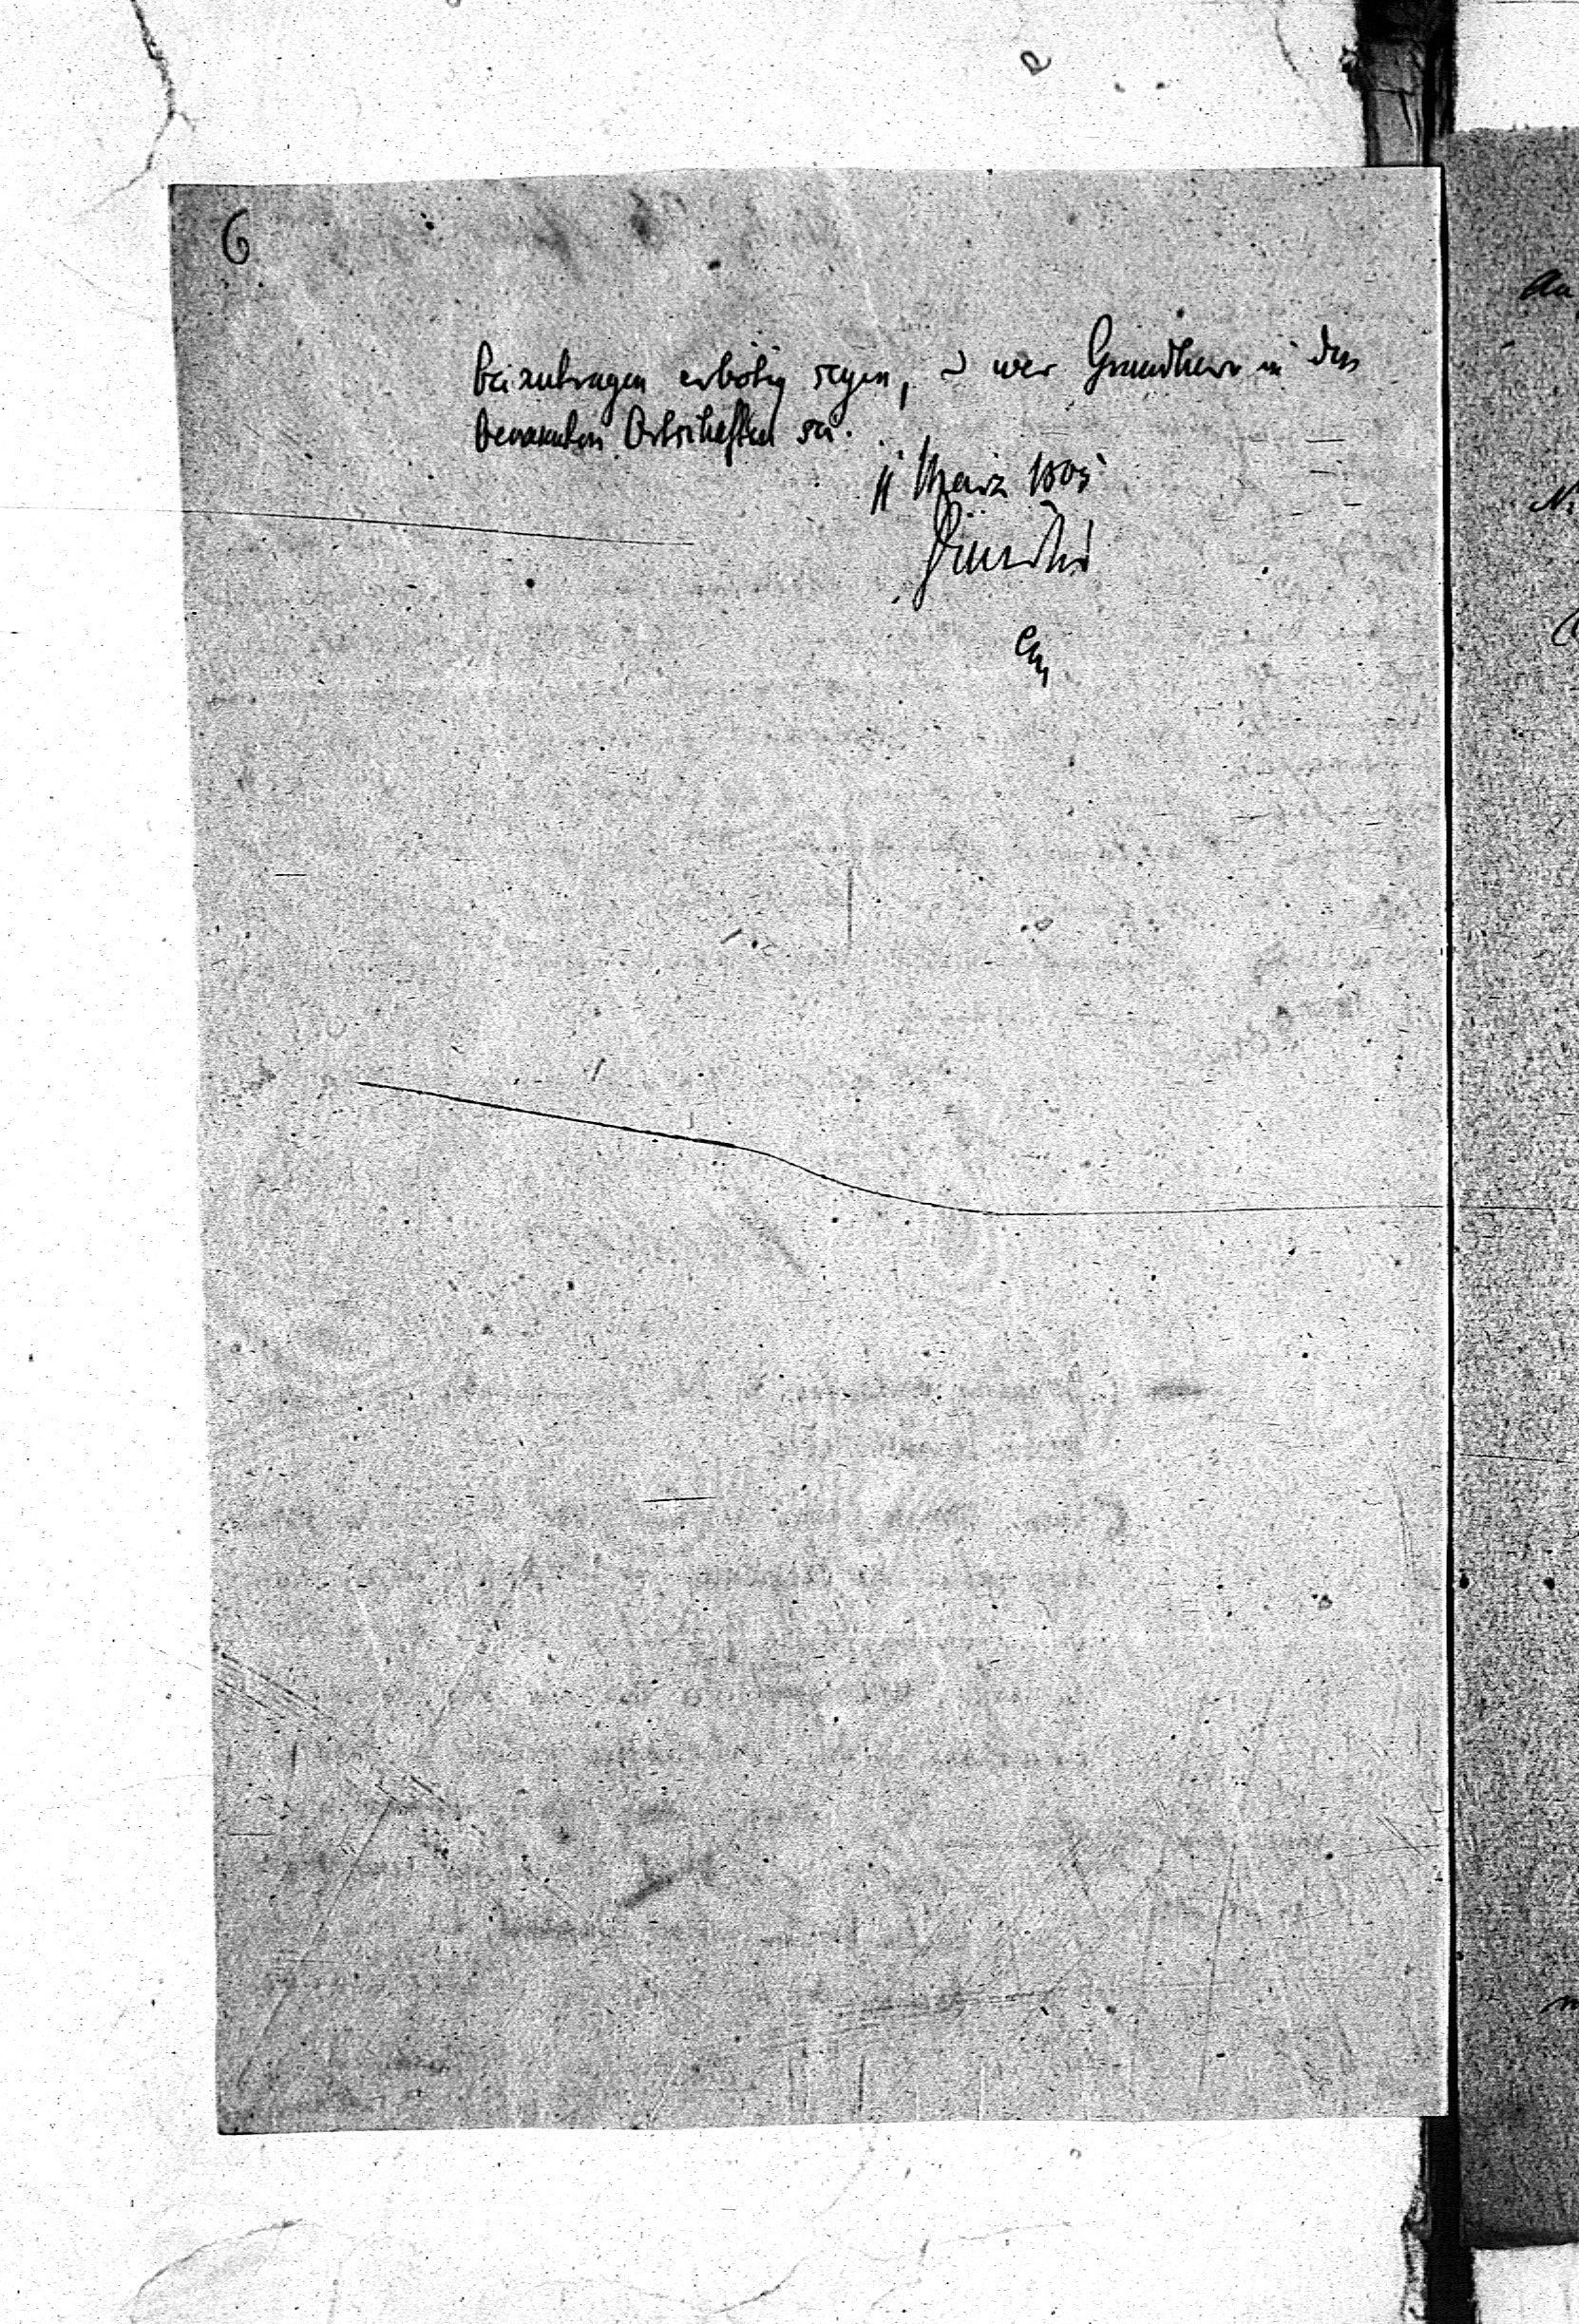 6
beizutragen erbötig seyen, u wer Grundherr in den
benannten Ortschaften sei.
11 März 1805
An